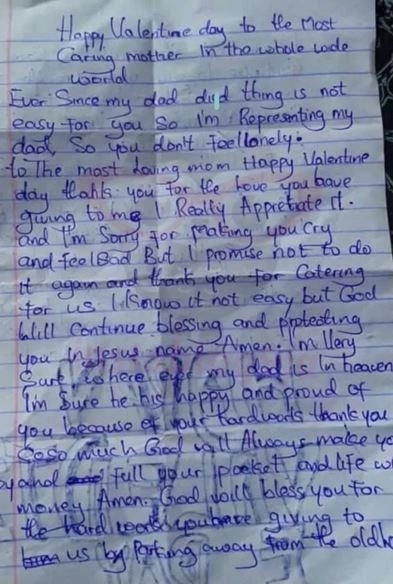 Happy Valentine day to the Most
Caring mother In the whole wide
world
Ever Since my dad died thing is not
easy for you So I'm Representing my
dad, So you don't feel lonely.
to The most loving mom Happy Valentine
day thanks you for the love you have
giving to me I Really Appretiate it.
and I'm Sorry for Making you Cry
and feel Bad But I promise not to do
it again and thank you for Catering
for us I Know it not easy but God
Will Continue blessing and protecting
you In Jesus name Amen. I'm Very
Sure where ever my dad is In heaven
I'm Sure he his happy and proud of
you because of your hardwork thank you
Soso much God will Always make yo
and full your pocket and life w
money Amen. God will bless you for
the hard work you have giving to
us by away from the